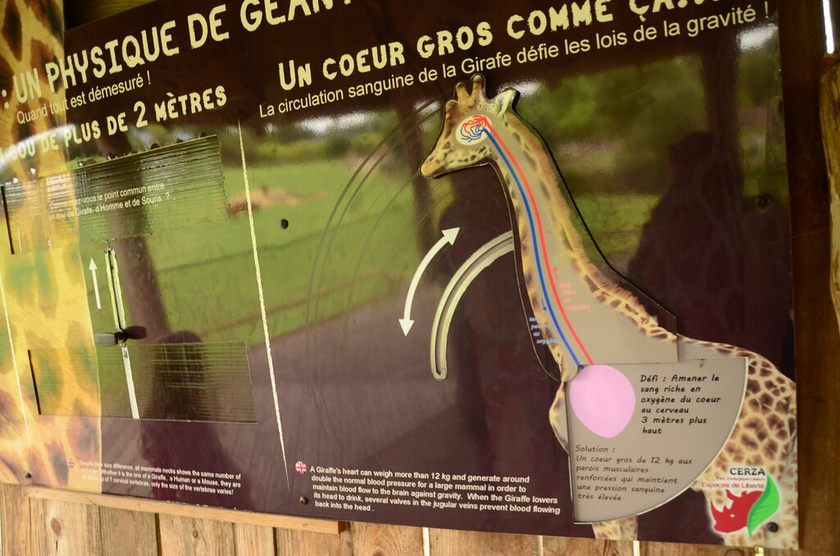 : UN PHYSIQUE DE GÉAN
Quand tout est démesuré !
COU DE PLUS DE 2 MÈTRES
le point commun entre
de Girafe, d'Homme et de Souris ?
size difference, all mammals necks shows the same number of
Whether it is the one of a Giraffe, a Human or a Mouse, they are
of 7 cervical vertebrae, only the size of the vertebrae varies!
UN COEUR GROS COMME ÇA...
La circulation sanguine de la Girafe défie les lois de la gravité !
Défi : Amener le
sang riche en
oxygène du coeur
au cerveau
3 mètres plus
haut
Solution :
Un coeur gros de 12 kg aux
parois musculaires
renforcées qui maintient
une pression sanguine
très élevée
A Giraffe's heart can weigh more than 12 kg and generate around
double the normal blood pressure for a large mammal in order to
maintain blood flow to the brain against gravity. When the Giraffe lowers
its head to drink, several valves in the jugular veins prevent blood flowing
back into the head .
CERZA
Espaces de Liberté